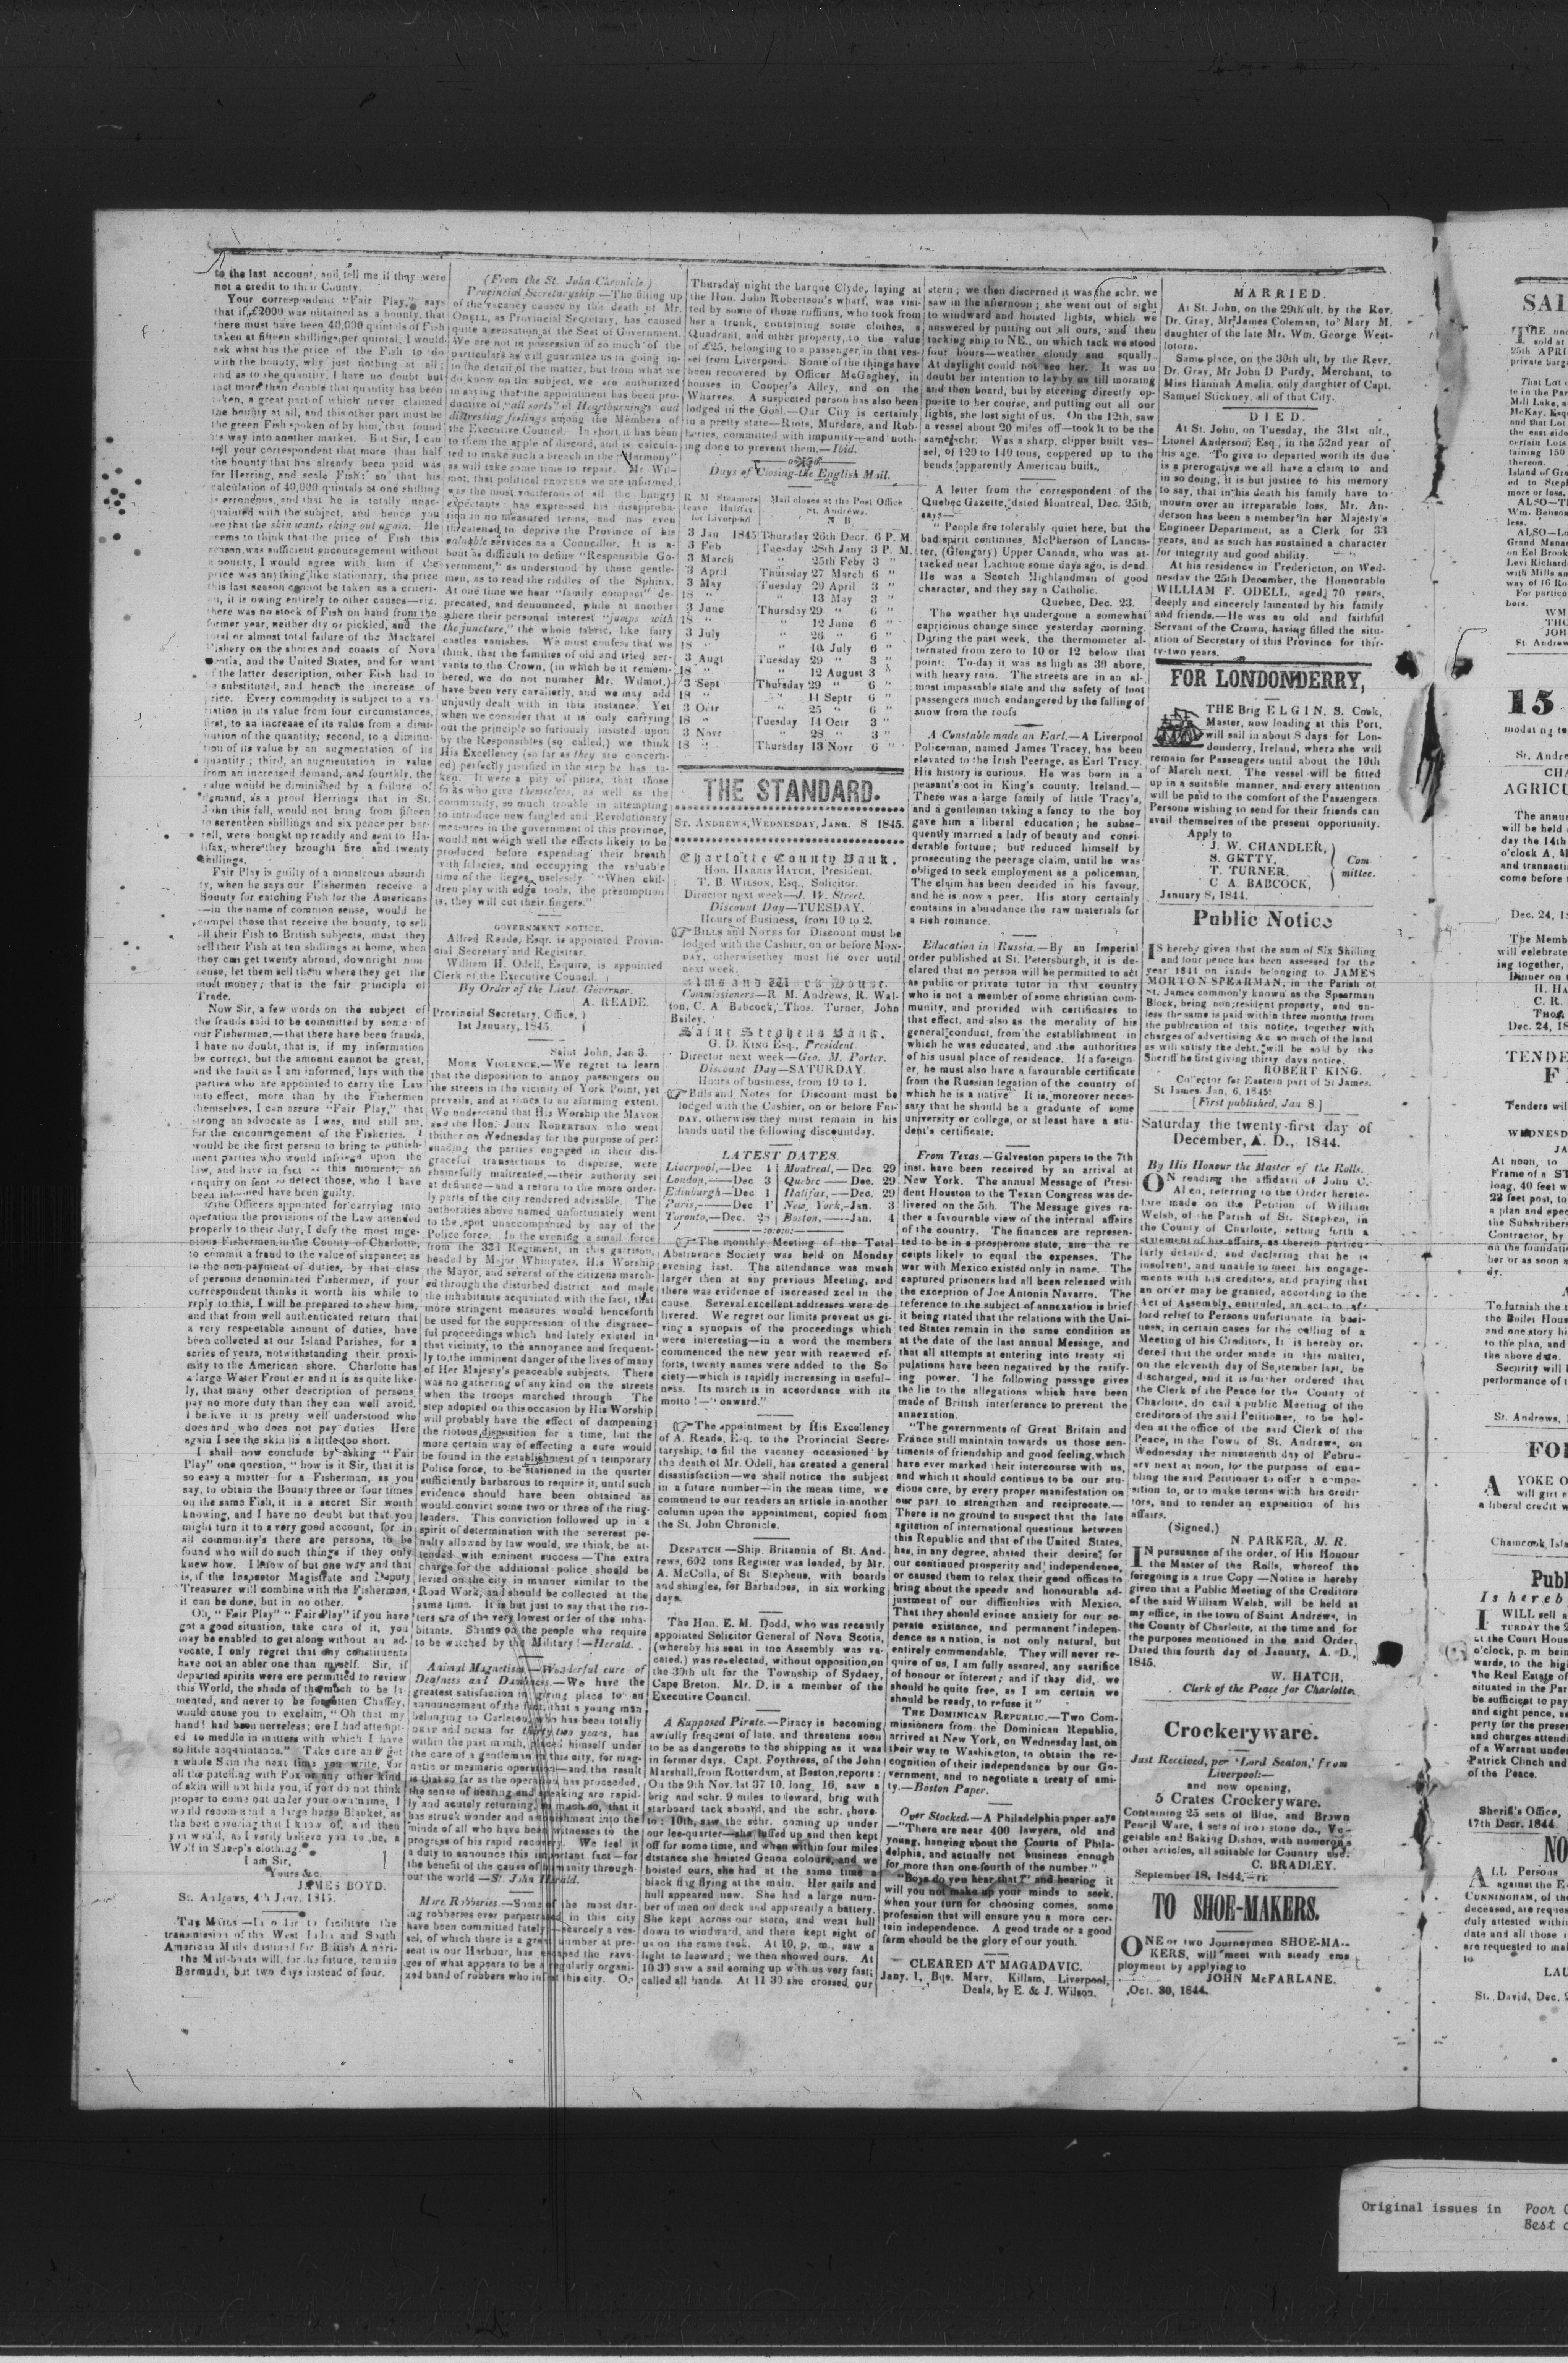 to the last account, and tell me if they were
not a credit to their County.
Your correspondent "Fair Play," says
that if £2000 was obtained as a bounty, that
there must have been 40,000 quintals of Fish
taken at fifteen shillings per quintal, I would
ask what has the price of the Fish to do
with the bounty, why just nothing at all;
and as to the quantity, I have no doubt but
that more than double that quantity has been
taken, a great part of which never claimed
the bounty at all, and this other part must be
the green Fish spoken of by him, that found
his way into another market. But Sir, I can
tell your correspondent that more than half
the bounty that has already been paid was
for Herring, and scale Fish: so that his
calculation of 40,000 quintals at one shilling
is erroneous, and that he is totally unac-
quainted with the subject, and hence you
see that the skin wants eking out again. He
seems to think that the price of Fish this
season was sufficient encouragement without
a bounty, I would agree with him if the
price was anything like stationary, the price
this last season cannot be taken as a criteri-
on, it is owing entirely to other causes—viz.
there was no stock of Fish on hand from the
former year, neither dry or pickled, and the
total or almost total failure of the Mackarel
Fishery on the shores and coasts of Nova
Scotia, and the United States, and for want
of the latter description, other Fish had to
be substituted, and hence the increase of
price. Every commodity is subject to a va-
riation in its value from four circumstances,
first, to an increase of its value from a dimi-
nution of the quantity; second, to a diminu-
tion of its value by an augmentation of its
quantity; third, an augmentation in value
from an increased demand, and fourthly, the
value would be diminished by a failure of
demand, as a proof Herrings that in St.
John this fall, would not bring from fifteen
to seventeen shillings and six pence per bar-
rell, were bought up readily and sent to Ha-
lifax, where they brought five and twenty
shillings.
Fair Play is guilty of a monstrous absurdi
ty, when he says our Fishermen receive a
Bounty for catching Fish for the Americans
—in the name of common sense, would he
compel those that receive the bounty, to sell
all their Fish to British subjects, must they
sell their Fish at ten shillings at home, when
they can get twenty abroad, downright non
sense, let them sell them where they get the
most money; that is the fair principle of
Trade.
Now Sir, a few words on the subject of
the frauds said to be committed by some of
our Fishermen,—that there have been frauds,
I have no doubt, that is, if my information
be correct, but the amount cannot be great,
and the fault as I am informed, lays with the
parties who are appointed to carry the Law
into effect, more than by the Fishermen
themselves, I can assure "Fair Play," that
strong an advocate as I was, and still am,
for the encouragement of the Fisheries. I
would be the first person to bring to punish-
ment parties who would infringe upon the
law, and have in fact at this moment, an
enquiry on foot to detect those, who I have
been informed have been guilty.
If the Officers appointed for carrying into
operation the provisions of the Law attended
properly to their duty, I defy the most inge-
nious Fishermen in the County of Charlotte,
to commit a fraud to the value of sixpence; as
to the non-payment of duties, by that class
of persons denominated Fishermen, if your
correspondent thinks it worth his while to
reply to this, I will be prepared to shew him,
and that from well authenticated return that
a very respectable amount of duties, have
been collected at our Island Parishes, for a
series of years, notwithstanding their proxi-
mity to the American shore. Charlotte has
a large Water Frontier and it is as quite like-
ly, that many other description of persons
pay no more duty than they can well avoid.
I believe it is pretty well understood who
does and who does not pay duties Here
again I see the skin is a little too short.
I shall now conclude by asking "Fair
Play" one question, "how is it Sir, that it is
so easy a matter for a Fisherman, as you
say, to obtain the Bounty three or four times
on the same Fish, it is a secret Sir worth
knowing, and I have no doubt but that you
might turn it to a very good account, for in
all community's there are persons, to be
found who will do such things if they only
knew how. I know of but one way and that
is, if the Inspector Magistrate and Deputy
Treasurer will combine with the Fishermen,
it can be done, but in no other.
Oh, "Fair Play" "Fair Play" if you have
got a good situation, take care of it, you
may be enabled to get along without an ad-
vocate, I only regret that my constituents
have not an abler one than myself. Sir, if
departed spirits were ere permitted to review
this World, the shade of the much to be la-
mented, and never to be forgotten Chaffey,
would cause you to exclaim, "Oh that my
hand! had been nerveless; ere I had attempt-
ed to meddle in matters with which I have
so little acquaintance." Take care and get
a whole Skin the next time you write, for
all the patching with Fox or any other kind
of skin will not hide you, if you do not think
proper to come out under your own name, I
would recommend a large horse Blanket, as
the best covering that I know of, and then
you would, as I verily believe you to be, a
Wolf in Sheep's clothing.
I am Sir,
Yours &c.
JAMES BOYD.
St. Andrews, 4th Jany. 1845.
THE MAILS—In order to facilitate the
transmission of the West India and South
American Mails destined for British Ameri-
the Mail-boats will, for the future, remain
Bermuda, but two days instead of four.
(From the St. John Chronicle.)
Provincial Secretaryship.—The filling up
of the vacancy caused by the death of Mr.
ODELL, as Provincial Secretary, has caused
quite a sensation at the Seat of Government.
We are not in possession of so much of the
particulars as will guarantee us in going in-
to the detail of the matter, but from what we
do know on the subject, we are authorized
in saying that the appointment has been pro-
ductive of "all sorts" of Heartburnings and
distressing feelings among the Members of
the Executive Council. In short it has been
to them the apple of discord, and is calcula-
ted to make such a breach in the "Harmony"
as will take some time to repair. Mr Wil-
mot, that political we are informed,
was the most vociferous of all the hungry
expectants: has expressed his disapproba-
tion in no measured terms, and has even
threatened to deprive the Province of his
valuable services as a Councillor. It is a-
bout as difficult to define "Responsible Go-
vernment," as understood by those gentle-
men, as to read the riddles of the Sphinx.
At one time we hear "family compact" de-
precated, and denounced, while at another
where their personal interest "jumps with
the juncture," the whole fabric, like fairy
castles vanishes. We must confess that we
think, that the families of old and tried ser-
vants to the Crown, (in which be it remem-
bered, we do not number Mr. Wilmot,)
have been very cavalierly, and we may add
unjustly dealt with in this instance. Yet
when we consider that it is only carrying
out the principle so furiously insisted upon
by the Responsibles (so called,) we think
His Excellency (so far as they are concern-
ed) perfectly justified in the step he has ta-
ken. It were a pity of pities, that those
folks who give themselves, as well as the
community, so much trouble in attempting
to introduce new fangled and Revolutionary
measures in the government of this province,
would not weigh well the effects likely to be
produced before expending their breath
with falacies, and occupying the valuable
time of the lieges uselessly. "When chil-
dren play with edge tools, the presumption
is, they will cut their fingers."
GOVERNMENT NOTICE.
Alfred Reade, Esqr. is appointed Provin-
cial Secretary and Registrar.
William H. Odell, Esquire, is appointed
Clerk of the Executive Council.
By Order of the Lieut. Governor.
A. READE.
Provincial Secretary, Office, }
1st January, 1845. }
Saint John, Jan 3.
MORE VIOLENCE.—We regret to learn
that the disposition to annoy passengers on
the streets in the vicinity of York Point, yet
prevails, and at times to an alarming extent.
We understand that His Worship the MAYOR
and the Hon. JOHN ROBERTSON who went
thither on Wednesday for the purpose of per-
suading the parties engaged in their dis-
graceful transactions to disperse, were
shamefully maltreated,—their authority set
at defiance—and a return to the more order-
ly parts of the city rendered advisable. The
authorities above named unfortunately went
to the spot unaccompanied by any of the
Police force. In the evening a small force
from the 33d Regiment, in this garrison,
headed by Major Whinyates, His Worship
the Mayor, and several of the citizens march-
ed through the disturbed district and made
the inhabitants acquainted with the fact, that
more stringent measures would henceforth
be used for the suppression of the disgrace-
ful proceedings which had lately existed in
that vicinity, to the annoyance and frequent-
ly to the imminent danger of the lives of many
of Her Majesty's peaceable subjects. There
was no gathering of any kind on the streets
when the troops marched through The
step adopted on this occasion by His Worship
will probably have the effect of dampening
the riotous disposition for a time, but the
more certain way of effecting a cure would
be found in the establishment of a temporary
Police force, to be stationed in the quarter
sufficiently barbarous to require it, until such
evidence should have been obtained as
would convict some two or three of the ring-
leaders. This conviction followed up in a
spirit of determination with the severest pe-
nalty allowed by law would, we think, be at-
tended with eminent success—The extra
charge for the additional police should be
levied on the city in manner similar to the
Road Work, and should be collected at the
same time. It is but just to say that the rio-
ters are of the very lowest order of the inha-
bitants. Shame on the people who require
to be watched by the Military!—Herald.
Animal Magnetism.—Wonderful cure of
Deafness and Dumbness.—We have the
greatest satisfaction in giving place to an
announcement of the fact, that a young man
belonging to Carleton, who has been totally
DEAF and DUMB for thirty two years, has
within the past month, placed himself under
the care of a gentleman in this city, for mag-
netic or mesmeric operation—and the result
is that so far as the operation has proceeded,
the sense of hearing and speaking are rapid-
ly and acutely returning, so much so, that it
has struck wonder and astonishment into the
minds of all who have been witnesses to the
progress of his rapid recovery. We feel it
a duty to announce this important fact—for
the benefit of the cause of humanity through-
out the world—St. John Herald.
More Robberies.—Some of the most dar-
ing robberies ever perpetrated in this city
have been committed lately—scarcely a ves-
sel, of which there is a great number at pre-
sent in our Harbour, has escaped the rava-
ges of what appears to be a regularly organi-
zed band of robbers who infest this city. On
Thursday night the barque Clyde, laying at
the Hon. John Robertson's wharf, was visi-
ted by some of those ruffians, who took from
her a trunk, containing some clothes, a
Quadrant, and other property, to the value
of £25, belonging to a passenger in that ves-
sel from Liverpool. Some of the things have
been recovered by Officer McGaghey, in
houses in Cooper's Alley, and on the
Wharves. A suspected person has also been
lodged in the Goal.—Our City is certainly
in a pretty state—Riots, Murders, and Rob-
beries, committed with impunity—and noth-
ing done to prevent them.—Ibid.
Days of Closing the English Mail.
R M Steamers leave Halifax for Liverpool | Mail closes at the Post Office St. Andrews. N B.
3 Jan 1845 Thursday 26th Decr. 6 P. M.
3 Feb Tuesday 28th Jany 3 P. M.
3 March " 25th Feby 3 "
3 April Thursday 27 March 6 "
3 May Tuesday 29 April 3 "
18 " " 13 May 3 "
3 June Thursday 29 " 6 "
18 " " 12 June 6 "
3 July " 26 " 6 "
18 " " 10 July 6 "
3 Augt Tuesday 29 " 3 "
18 " " 12 August 3 "
3 Sept Thursday 29 " 6 "
18 " " 11 Septr 6 "
3 Octr " 25 " 6 "
18 " Tuesday 14 Octr 3 "
3 Novr " 28 " 3 "
18 " Thursday 13 Novr 6 "
THE STANDARD.
ST. ANDREWS, WEDNESDAY, JANR. 8 1845.
Charlotte County Bank.
Hon. HARRIS HATCH, President.
T. B. WILSON, Esq., Solicitor.
Director next week—J. W. Street.
Discount Day—TUESDAY.
Hours of Business, from 10 to 2.
BILLS and NOTES for Discount must be
lodged with the Cashier, on or before MON-
DAY, otherwise they must lie over until
next week.
Alms and Work House.
Commissioners—R. M. Andrews, R. Wal-
ton, C. A. Babcock, Thos. Turner, John
Bailey.
Saint Stephens Bank.
G. D. KING Esq., President.
Director next week—Geo. M. Porter.
Discount Day—SATURDAY.
Hours of business, from 10 to 1.
Bills and Notes for Discount must be
lodged with the Cashier, on or before FRI-
DAY, otherwise they must remain in his
hands until the following discount day.
LATEST DATES.
Liverpool,—Dec 4 | Montreal,—Dec. 29
London,—Dec 3 | Quebec—Dec. 29
Edinburgh—Dec 1 | Halifax,—Dec. 29
Paris,—Dec 1 | New York,—Jan. 3
Toronto,—Dec. 28 | Boston,—Jan. 4
The monthly Meeting of the Total
Abstinence Society was held on Monday
evening last. The attendance was much
larger then at any previous Meeting, and
there was evidence of increased zeal in the
cause. Several excellent addresses were de
livered. We regret our limits prevent us gi-
ving a synopsis of the proceedings which
were interesting—in a word the members
commenced the new year with renewed ef-
forts, twenty names were added to the So
ciety—which is rapidly increasing in useful-
ness. Its march is in accordance with its
motto!—"onward."
The appointment by His Excellency
of A. Reade, Esq. to the Provincial Secre-
taryship, to fill the vacancy occasioned by
the death of Mr. Odell, has created a general
dissatisfaction—we shall notice the subject
in a future number—in the mean time, we
commend to our readers an article in another
column upon the appointment, copied from
the St. John Chronicle.
DESPATCH—Ship Britannia of St. And-
rews, 602 tons Register was loaded, by Mr.
A. McColla, of St Stephens, with boards
and shingles, for Barbadoes, in six working
days.
The Hon. E. M. Dodd, who was recently
appointed Solicitor General of Nova Scotia,
(whereby his seat in the Assembly was va-
cated,) was re-elected, without opposition, on
the 30th ult for the Township of Sydney,
Cape Breton. Mr. D. is a member of the
Executive Council.
A Supposed Pirate.—Piracy is becoming
awfully frequent of late, and threatens soon
to be as dangerous to the shipping as it was
in former days. Capt. Poythress, of the John
Marshall, from Rotterdam, at Boston, reports:
On the 9th Nov. lat 37 10, long. 16, saw a
brig and schr. 9 miles to leeward, brig with
starboard tack aboard, and the schr. hove-
to: 10th, saw the schr. coming up under
our lee-quarter—she luffed up and then kept
off for some time, and when within four miles
distance she hoisted Genoa colours, and we
hoisted ours, she had at the same time a
black flag flying at the main. Her sails and
hull appeared new. She had a large num-
ber of men on deck and apparently a battery.
She kept across our stern, and went hull
down to windward, and there kept sight of
us on the same tack. At 10, p. m., saw a
light to leeward; we then showed ours. At
10 30 saw a sail coming up with us very fast;
called all hands. At 11 30 she crossed our
stern; we then discerned it was the schr. we
saw in the afternoon; she went out of sight
to windward and hoisted lights, which we
answered by putting out all ours, and then
tacking ship to NE., on which tack we stood
four hours—weather cloudy and squally—
At daylight could not see her. It was no
doubt her intention to lay by us till morning
and then board, but by steering directly op-
posite to her course, and putting out all our
lights, she lost sight of us. On the 12th, saw
a vessel about 20 miles off—took it to be the
same schr. Was a sharp, clipper built ves-
sel, of 120 to 140 tons, coppered up to the
bends apparently American built.
A letter from the correspondent of the
Quebec Gazette, dated Montreal, Dec. 25th,
says—
"People are tolerably quiet here, but the
bad spirit continues. McPherson of Lancas-
ter, (Glengary) Upper Canada, who was at-
tacked near Lachine some days ago, is dead.
He was a Scotch Highlandman of good
character, and they say a Catholic.
Quebec, Dec. 23.
The weather has undergone a somewhat
capricious change since yesterday morning.
During the past week, the thermometer al-
ternated from zero to 10 or 12 below that
point: To-day it was as high as 39 above,
with heavy rain. The streets are in an al-
most impassable state and the safety of foot
passengers much endangered by the falling of
snow from the roofs
A Constable made an Earl.—A Liverpool
Policeman, named James Tracey, has been
elevated to the Irish Peerage, as Earl Tracy.
His history is curious. He was born in a
peasant's cot in King's county, Ireland.—
There was a large family of little Tracy's,
and a gentleman taking a fancy to the boy
gave him a liberal education; he subse-
quently married a lady of beauty and consi-
derable fortune; but reduced himself by
prosecuting the peerage claim, until he was
obliged to seek employment as a policeman.
The claim has been decided in his favour,
and he is now a peer. His story certainly
contains in abundance the raw materials for
a rich romance.
Education in Russia.—By an Imperial
order published at St. Petersburgh, it is de-
clared that no person will be permitted to act
as public or private tutor in that country
who is not a member of some christian com-
munity, and provided with certificates to
that effect, and also as the morality of his
general conduct, from the establishment in
which he was educated, and the authorities
of his usual place of residence. If a foreign-
er, he must also have a favourable certificate
from the Russian legation of the country of
which he is a native It is, moreover neces-
sary that he should be a graduate of some
university or college, or at least have a stu-
dent's certificate.
From Texas.—Galveston papers to the 7th
inst. have been received by an arrival at
New York. The annual Message of Presi-
dent Houston to the Texan Congress was de-
livered on the 5th. The Message gives ra-
ther a favourable view of the internal affairs
of the country. The finances are represen-
ted to be in a prosperous state, and the re
ceipts likely to equal the expenses. The
war with Mexico existed only in name. The
captured prisoners had all been released with
the exception of Joe Antonia Navarro. The
reference to the subject of annexation is brief
it being stated that the relations with the Uni-
ted States remain in the same condition as
at the date of the last annual Message, and
that all attempts at entering into treaty sti
pulations have been negatived by the ratify-
ing power. The following passage gives
the lie to the allegations which have been
made of British interference to prevent the
annexation.
"The governments of Great Britain and
France still maintain towards us those sen-
timents of friendship and good feeling, which
have ever marked their intercourse with us,
and which it should continue to be our stu-
dious care, by every proper manifestation on
our part to strengthen and reciprocate.—
There is no ground to suspect that the late
agitation of international questions between
this Republic and that of the United States,
has, in any degree, abated their desire for
our continued prosperity and independence,
or caused them to relax their good offices to
bring about the speedy and honourable ad-
justment of our difficulties with Mexico.
That they should evince anxiety for our se-
parate existence, and permanent indepen-
dence as a nation, is not only natural, but
entirely commendable. They will never re-
quire of us, I am fully assured, any sacrifice
of honour or interest; and if they did, we
should be quite free, as I am certain we
should be ready, to refuse it"
THE DOMINICAN REPUBLIC.—Two Com-
missioners from the Dominican Republic,
arrived at New York, on Wednesday last, on
their way to Washington, to obtain the re-
cognition of their independence by our Go-
vernment, and to negotiate a treaty of ami-
ty.—Boston Paper.
Over Stocked.—A Philadelphia paper says
—"There are near 400 lawyers, old and
young, hanging about the Courts of Phila-
delphia, and actually not business enough
for more than one-fourth of the number."
"Boys do you hear that?" and hearing it
will you not make up your minds to seek,
when your turn for choosing comes, some
profession that will ensure you a more cer-
tain independence. A good trade or a good
farm should be the glory of our youth.
CLEARED AT MAGADAVIC.
Jany. 1, Bqe. Mary, Killam, Liverpool,
Deals, by E. & J. Wilson.
MARRIED.
At St. John, on the 29th ult. by the Rev.
Dr. Gray, Mr James Coleman, to Mary M.
daughter of the late Mr. Wm. George West-
lotorn.
Same place, on the 30th ult, by the Revr.
Dr. Gray, Mr John D Purdy, Merchant, to
Miss Hannah Amelia, only daughter of Capt.
Samuel Stickney, all of that City.
DIED.
At St. John, on Tuesday, the 31st ult.,
Lionel Anderson, Esq., in the 52nd year of
his age. To give to departed worth its due
is a prerogative we all have a claim to and
in so doing, it is but justice to his memory
to say, that in his death his family have to
mourn over an irreparable loss. Mr. An-
derson has been a member in her Majesty's
Engineer Department, as a Clerk for 33
years, and as such has sustained a character
for integrity and good ability.
At his residence in Fredericton, on Wed-
nesday the 25th December, the Honorable
WILLIAM F. ODELL, aged 70 years,
deeply and sincerely lamented by his family
and friends.—He was an old and faithful
Servant of the Crown, having filled the situ-
ation of Secretary of this Province for thir-
ty-two years.
FOR LONDONDERRY,
THE Brig ELGIN, S. Cook,
Master, now loading at this Port,
will sail in about 8 days for Lon-
donderry, Ireland, where she will
remain for Passengers until about the 10th
of March next. The vessel will be fitted
up in a suitable manner, and every attention
will be paid to the comfort of the Passengers.
Persons wishing to send for their friends can
avail themselves of the present opportunity.
Apply to
J. W. CHANDLER,
S. GETTY,
T. TURNER,
C A BABCOCK,
Com mittee.
January 8, 1844.
Public Notice
IS hereby given that the sum of Six Shilling
and four pence has been assessed for the
year 1844 on lands belonging to JAMES
MORTON SPEARMAN, in the Parish of
St. James commonly known as the Spearman
Block, being non-resident property, and un-
less the same is paid within three months from
the publication of this notice, together with
charges of advertising &c. so much of the land
as will satisfy the debt, will be sold by the
Sheriff he first giving thirty days notice.
ROBERT KING.
Collector for Eastern part of St James.
St James, Jan. 6, 1845:
[First published, Jan 8]
Saturday the twenty-first day of
December, A. D., 1844.
By His Honour the Master of the Rolls.
ON reading the affidavit of John C.
Allen, referring to the Order hereto-
fore made on the Petition of William
Welsh, of the Parish of St. Stephen, in
the County of Charlotte, setting forth a
statement of his affairs, as therein particu-
larly detailed, and declaring that he is
insolvent, and unable to meet his engage-
ments with his creditors, and praying that
an order may be granted, according to the
Act of Assembly, entituled, an act to af-
ford relief to Persons unfortunate in busi-
ness, in certain cases for the calling of a
Meeting of his Creditors. It is hereby or-
dered that the order made in this matter,
on the eleventh day of September last, be
discharged, and it is further ordered that
the Clerk of the Peace for the County of
Charlotte, do call a public Meeting of the
creditors of the said Petitioner, to be hol-
den at the office of the said Clerk of the
Peace, in the Town of St. Andrews, on
Wednesday the nineteenth day of Febru-
ary next at noon, for the purpose of ena-
bling the said Petitioner to offer a compo-
sition to, or to make terms with his credi-
tors, and to render an exposition of his
affairs.
(Signed,)
N. PARKER, M. R.
IN pursuance of the order, of His Honour
the Master of the Rolls, whereof the
foregoing is a true Copy—Notice is hereby
given that a Public Meeting of the Creditors
of the said William Welsh, will be held at
my office, in the town of Saint Andrews, in
the County of Charlotte, at the time and for
the purposes mentioned in the said Order.
Dated this fourth day of January, A. D.,
1845.
W. HATCH,
Clerk of the Peace for Charlotte.
Crockeryware.
Just Received, per 'Lord Seaton,' from
Liverpool:—
and now opening,
5 Crates Crockeryware.
Containing 25 sets of Blue, and Brown
Pencil Ware, 4 sets of iron stone do., Ve-
getable and Baking Dishes, with numerous
other articles, all suitable for Country use.
C. BRADLEY.
September 18, 1844.—ri:
TO SHOE-MAKERS.
ONE or two Journeymen SHOE-MA-
KERS, will meet with steady em-
ployment by applying to
JOHN McFARLANE.
Oct. 30, 1844.
SAL
THE
sold at
25th APRI
private barg
That Lot
Mill Lake,
McKay, Esq
and that Lot
the east side
certain Lots
taining 150
thereon.
Island of Gra
ed to Steph
more or less.
ALSO—T
Wm. Benson
less.
ALSO—Lo
Grand Manan
on Eel Brook
Levi Richard
with Mills an
way of 16 Ro
For particu
bers.
WM
THO
JOH
St Andrew
15
modating to
St. Andre
CHA
AGRICU
The annu
will be held
day the 14th
o'clock A. M
and transacti
come before
Dec. 24, 1
The Memb
will celebrate
ing together,
Dinner on
H. HA
C. R.
THOS
Dec. 24, 18
TENDE
F
Tenders wil
WEDNESD
JA
At noon, to
Frame of a ST
long, 40 feet w
22 feet post, to
a plan and spec
the Subshribers
Contractor, by
on the foundati
her or as soon
dy.
To furnish the t
the Boiler Hous
and one story hi
to the plan, and
the above date.
Security will
performance of t
St. Andrews,
FO
A YOKE O
will girt
a liberal credit w
Chamcook, Isla
Publ
Is hereb
I WILL sell a
TURDAY the 2
at the Court Hous
o'clock, p. m. bein
wards, to the hig
the Real Estate of
situated in the Par
be sufficient to pay
and eight pence,
perty for the presen
and charges attend
of a Warrant under
Patrick Clinch and
of the Peace.
Sheriff's Office,
17th Decr. 1844
NO
ALL Persons
against the E
CUNNINGHAM, of the
deceased, are reques
duly attested within
date and all those i
are requested to mak
to
LAU
St. David, Dec. 2
Original issues in Poor
Best